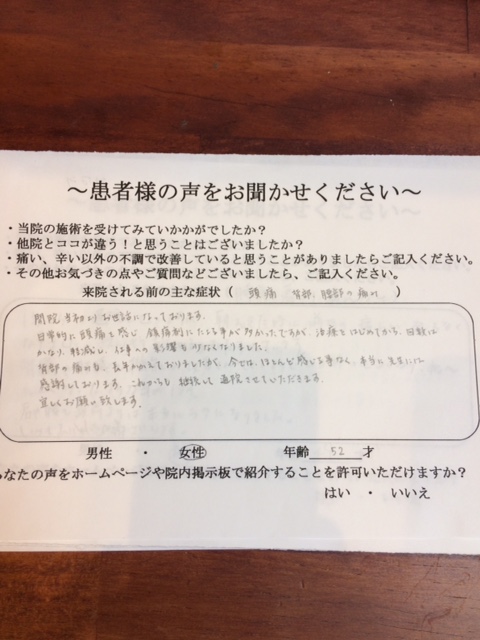 ～患者様の声をお聞かせください～
・当院の施術を受けてみていかかがでしたか？
・他院とココが違う！と思うことはございましたか？
・痛い、辛い以外の不調で改善していると思うことがありましたらご記入ください。
・その他お気づきの点やご質問などございましたら、ご記入ください。
来院される前の主な症状（ 頭痛 背部、腰部の痛み ）
開院当初よりお世話になっております。
日常的に頭痛を感じ 鎮痛剤にたよる事が多かったですが、治療をはじめてから、回数は
かなり、軽減し、仕事への影響も少なくなりました。
背部の痛みも、長年かかえておりましたが、今では、ほとんど感じる事なく、本当に先生には
感謝しております。これからも 継続して 通院させていただきます。
宜しくお願い致します。
男性 ・ 女性 年齢 52 才
なたの声をホームページや院内掲示板で紹介することを許可いただけますか？
はい ・ いいえ